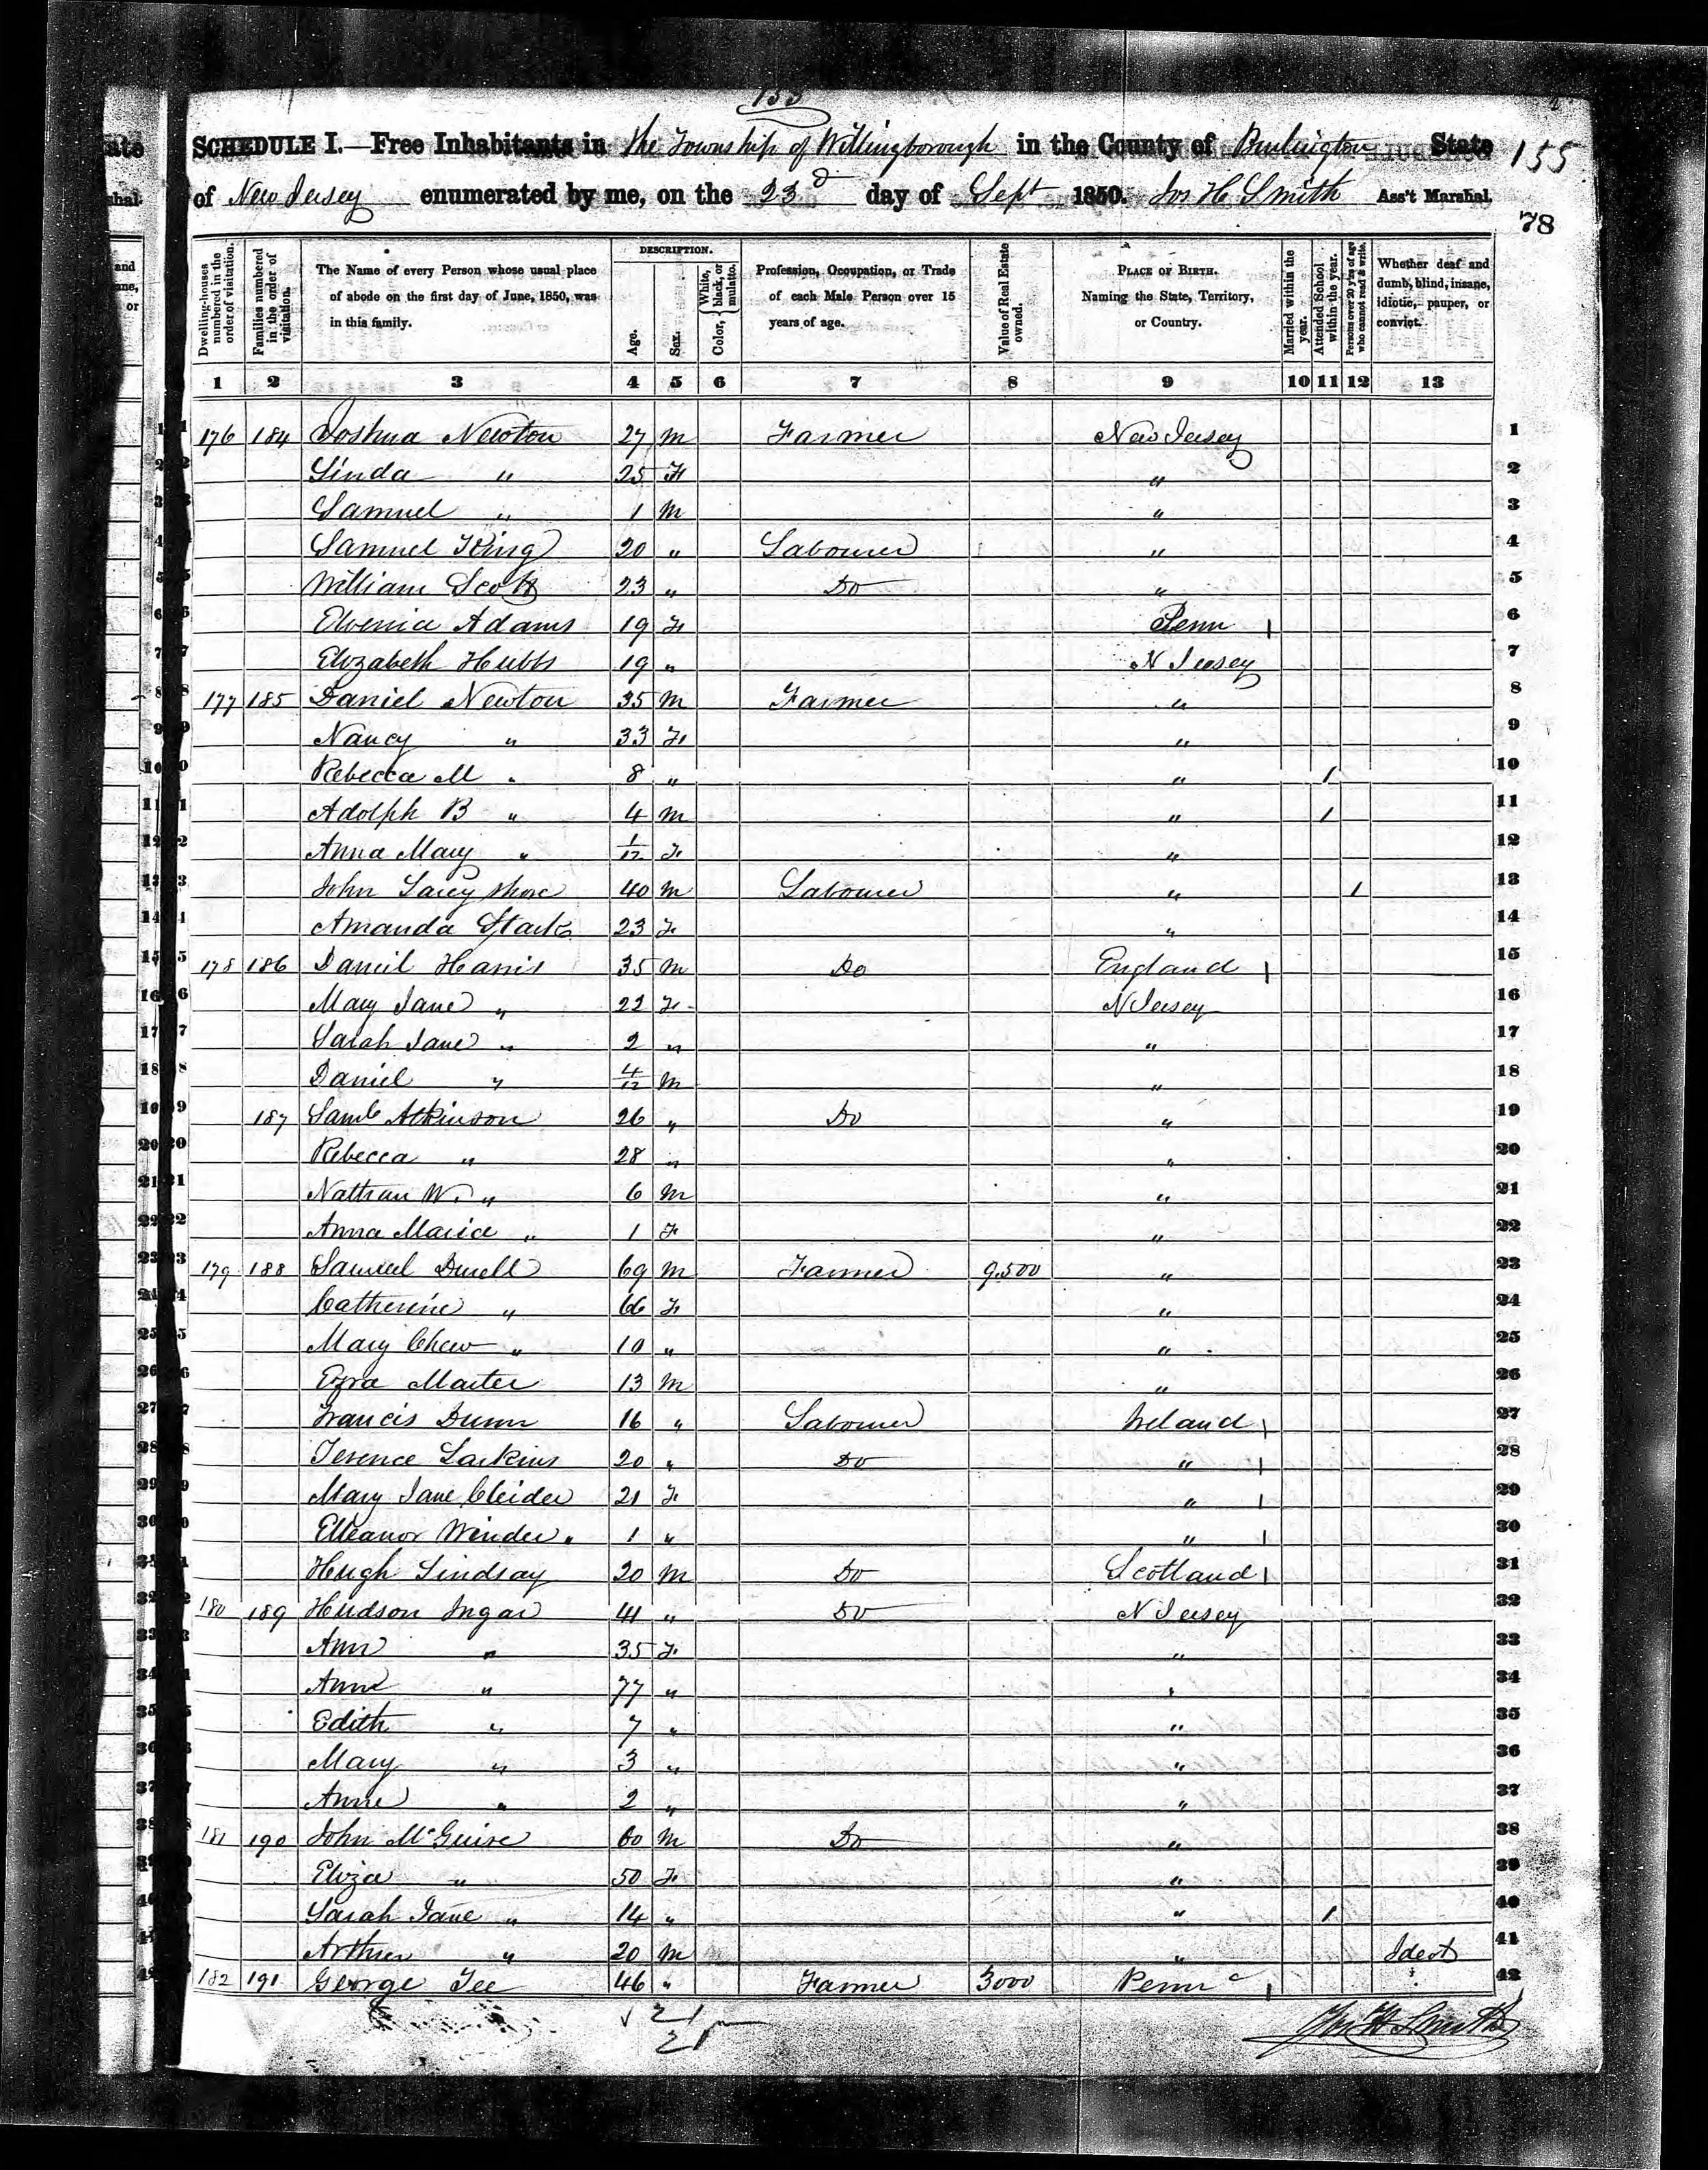 155
SCHEDULE I.—Free Inhabitants in the Township of Willingborough in the County of Burlington State 155
of New Jersey enumerated by me, on the 23d day of Sept 1850. Jos H Smith Ass't Marshal.
78
Dwelling-houses numbered in the order of visitation.
Families numbered in the order of visitation.
The Name of every Person whose usual place of abode on the first day of June, 1850, was in this family.
DESCRIPTION.
Age.
Sex.
Color, { White, black, or mulatto.
Profession, Occupation, or Trade of each Male Person over 15 years of age.
Value of Real Estate owned.
PLACE OF BIRTH. Naming the State, Territory, or Country.
Married within the year.
Attended School within the year.
Persons over 20 y'rs of age who cannot read & write.
Whether deaf and dumb, blind, insane, idiotic, pauper, or convict.
1 2 3 4 5 6 7 8 9 10 11 12 13
1 176 184 Joshua Newton 27 M Farmer New Jersey 1
2 Linda " 25 F " 2
3 Samuel " 1 M " 3
4 Samuel King 20 " Labourer " 4
5 William Scott 23 " Do " 5
6 Elvenia Adams 19 F Penn 1 6
7 Elizabeth Hubbs 19 " N Jersey 7
8 177 185 Daniel Newton 35 M Farmer " 8
9 Nancy " 33 F " 9
10 Rebecca M " 8 " " 1 10
11 Adolph B " 4 M " 1 11
12 Anna Mary " 1/12 F " 12
13 John 40 M Labourer " 1 13
14 Amanda 23 F " 14
15 178 186 Daniel Harris 35 M Do England 1 15
16 Mary Jane " 22 F N Jersey 16
17 Sarah Jane " 2 " " 17
18 Daniel " 4/12 M " 18
19 187 Saml Atkinson 26 " Do " 19
20 Rebecca " 28 " " 20
21 Nathan W. " 6 M " 21
22 Anna Maria " 1 F " 22
23 179 188 Samuel Durell 69 M Farmer 9.500 " 23
24 Catherine " 66 F " 24
25 Mary Chew " 10 " " 25
26 Ezra Marter 13 M " 26
27 Francis Dunn 16 " Labourer Ireland 1 27
28 Terence Larkins 20 " Do " 1 28
29 Mary Jane 21 F " 1 29
30 Elleanor Winder " 1 " " 1 30
31 Hugh Lindsay 20 M Do Scotland 1 31
32 180 189 Hudson Ingar 41 " Do N Jersey 32
33 Ann " 35 F " 33
34 Ann " 77 " " 34
35 Edith " 7 " " 35
36 Mary " 3 " " 36
37 Anne " 2 " " 37
38 181 190 John McGuire 60 M Do " 38
39 Eliza " 50 F " 39
40 Sarah Jane " 14 " " 1 40
41 Arthur " 20 M " Ideot 41
42 182 191 George Tee 46 " Farmer 3000 Penna 1 42
21
21
Jos H Smith